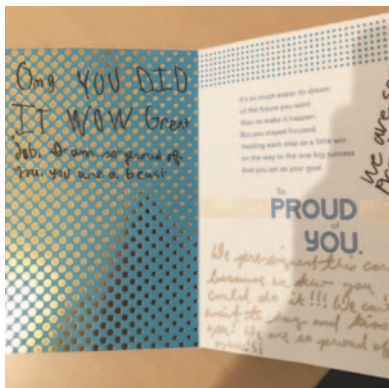 Omg YOU DID
IT WOW Great
Job. I am so proud of
you. you are a beast
It's so much easier to dream
of the future you want
than to make it happen.
But you stayed focused,
treating each step as a little win
on the way to the one big success
that you set as your goal.
So
PROUD
of
YOU.
We are so
We pre-signed this car
because we knew you
could do it!!! We can
wait to hug and
you! We are so proud of